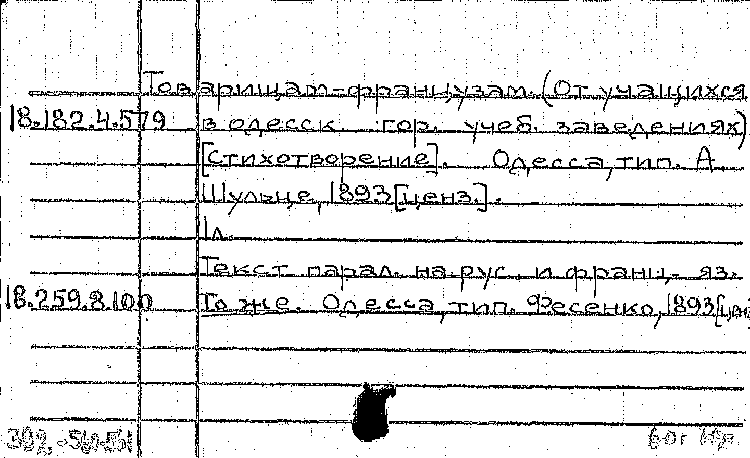 Товарищам-французам. (От учащихся
18.182.4.579 в одесск. гор. учеб. заведениях)
[стихотворение]. Одесса, тип. А.
Шульце, 1893 [ценз.].
1 л.
Текст парал. на рус. и франц. яз.
18.259.8.100 То же. Одесса, тип. Фесенко, 1893 [ценз